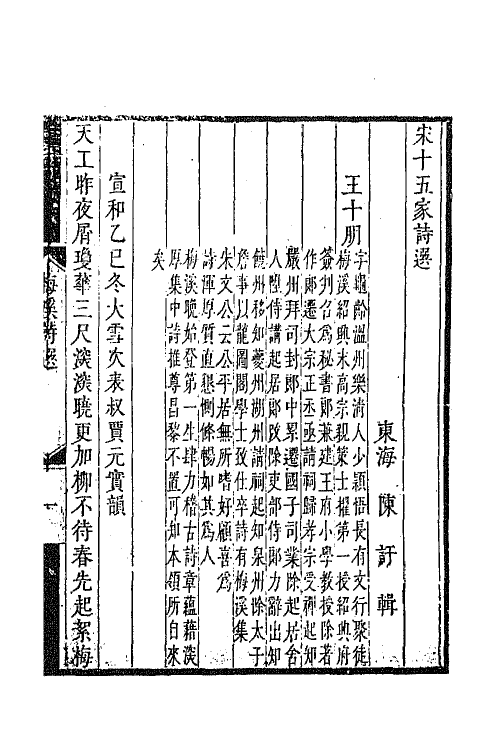 宋十五家詩選
東海 陳訏 輯
王十朋
字龜齡溫州樂清人少穎悟長有文行聚徒
梅溪紹興末高宗親策士擢第一授紹興府
簽判召為秘書郎兼建王府小學教授除著
作郎遷大宗正丞亟請祠歸孝宗受禪起知
嚴州拜司封郎中累遷國子司業除起居舍
人陞侍講起居郎改除吏部侍郎力辭出知
饒州移知夔州湖州請祠起知泉州除太子
詹事以龍圖閣學士致仕卒詩有梅溪集
朱文公云公平居無所嗜好顧喜為
詩渾厚質直懇惻條暢如其為人
梅溪晚始登第一生肆力稽古詩章蘊藉淡
厚集中詩推尊昌黎不置可知本領所自來
矣
宣和乙巳冬大雪次表叔賈元實韻
天工昨夜屑瓊華三尺深深曉更加柳不待春先起絮梅
梅溪詩選
一